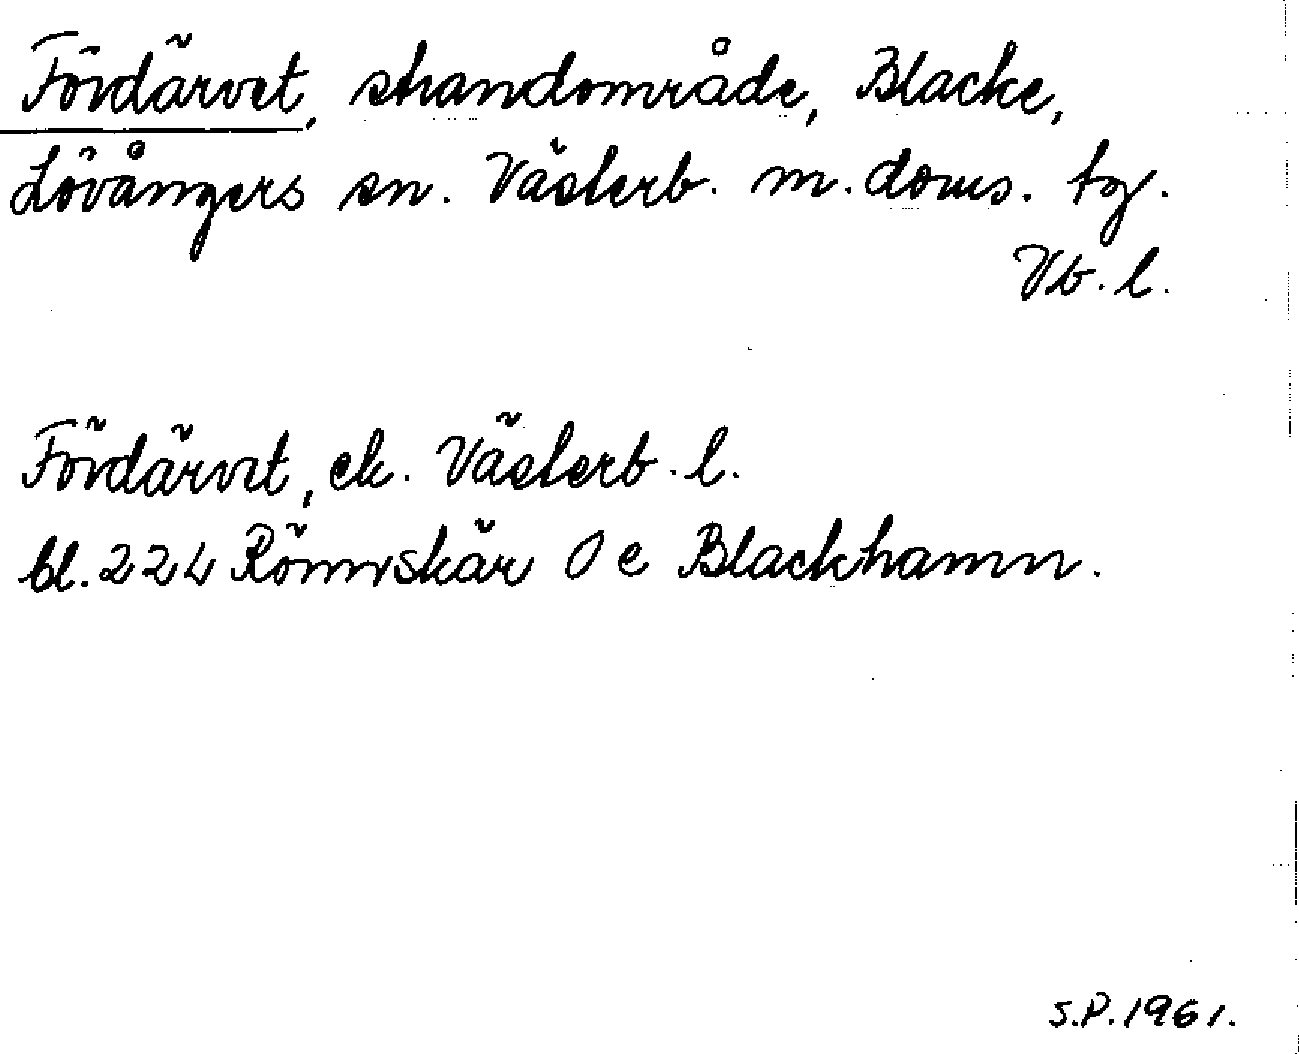 Fördärvet, strandområde, Blacke,
Lövångers sn. Västerb. m. doms. tg.
Vb. l.
Fördärvet, ek. Västerb. l.
bl. 224 Rönnskär O e Blackhamn.
S.P. 1961.